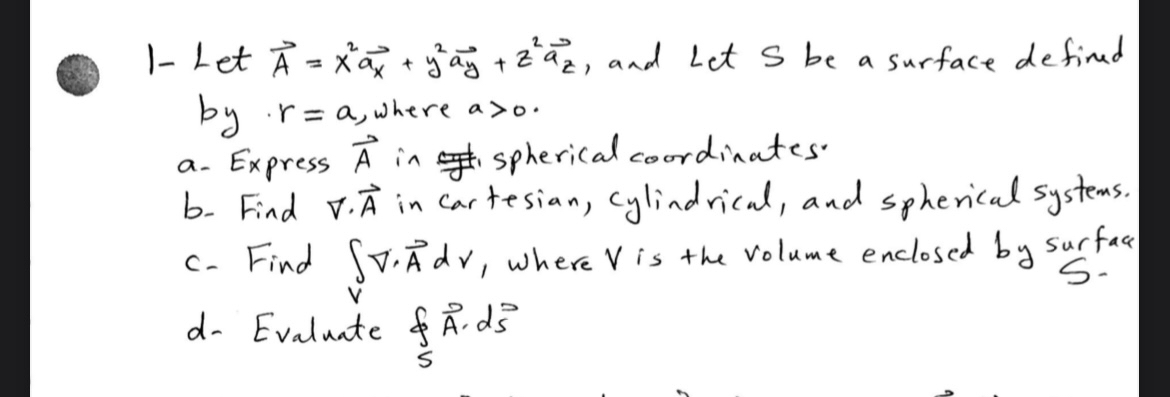 1- Let A⃗ = x²a⃗x + y²a⃗y + z²a⃗z, and Let S be a surface defined
by r = a, where a>0.
a- Express A⃗ in spherical coordinates.
b- Find ∇.A⃗ in cartesian, cylindrical, and spherical systems.
c- Find ∫V ∇.A⃗ dv, where V is the volume enclosed by surface
S.
d- Evaluate ∮S A⃗.ds⃗